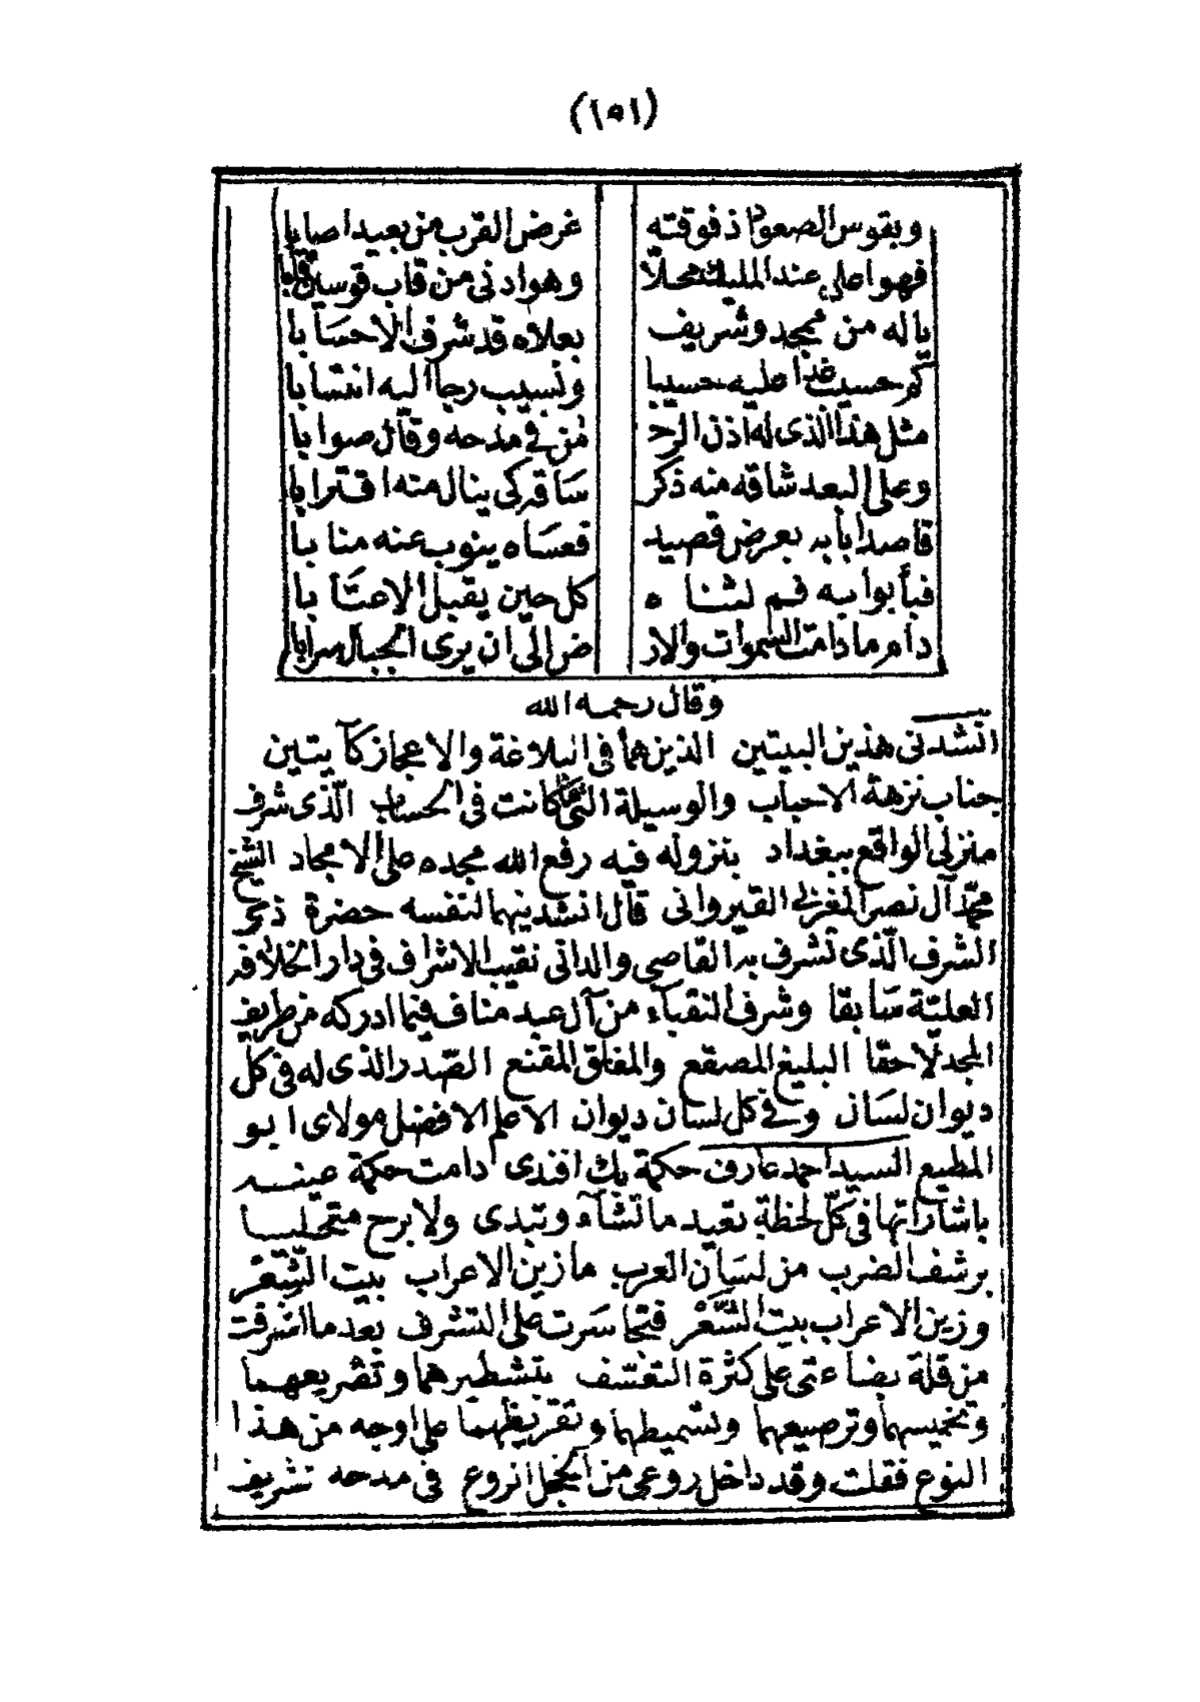 (١٥١)
وبقوس الصعود اذ فوقته غرض القرب من بعيد اصابا
فهو اعلى عند المليك محلا وهو ادنى من قاب قوسين قابا
يا له من ممجد وشريف بعلاه قد شرف الاحسابا
كم حسيب غدا عليه حسيبا ونسيب رجا اليه انتسابا
مثل هذا الذى له اذن الرحـ ـمن فى مدحه وقال صوابا
وعلى البعد شاقه منه ذكر ساقه كى ينال منه اقترابا
قاصدا بابه بعرض قصيد فعساه ينوب عنه منابا
فبأبوابه فم لثناه كل حين يقبل الاعتابا
دام ما دامت السموات والار ض الى ان يرى الجبال سرابا
وقال رحمه الله
انشدنى هذين البيتين الذين هما فى البلاغة والاعجاز كآيتين
جناب نزهة الاحباب والوسيلة التى كانت فى الحساب الذى شرف
منزلى الواقع ببغداد بنزوله فيه رفع الله مجده على الامجاد الشيخ
محمد آل نصر المغربى القيروانى قال انشدنيهما لنفسه حضرة ذى
الشرف الذى تشرف به القاصى والدانى نقيب الاشراف فى دار الخلافه
العلية سابقا وشرف النقباء من آل عبد مناف فيما ادركه من طريف
المجد لاحقا البليغ المصقع والمفلق المقنع الصدر الذى له فى كل
ديوان لسان وفى كل لسان ديوان الاعلم الافضل مولاى ابو
المطيع السيد احمد عارف حكمة بك افندى دامت حكمة عينه
باشاراتها فى كل لحظة تعيد ما تشآء وتبدى ولا برح متحليا
برشف الضرب من لسان العرب ما زين الاعراب بيت الشعر
وزين الاعراب بيت الشعر فتجاسرت على التشرف بعدما اشرقت
من قلة بضاعتى على كثرة التعسف بتشطيرهما وتشريعهما
وتخميسهما وترصيعهما وتسميطهما وتقريظهما على اوجه من هذا
النوع فقلت وقد داخل روعى من الخجل انزوع فى مدحه تشريف